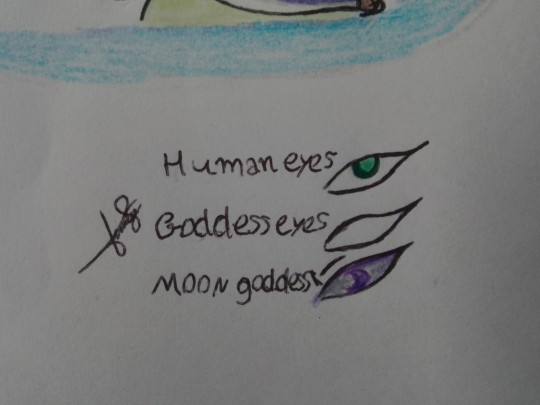 Human eyes
Goddess eyes
MOON goddess